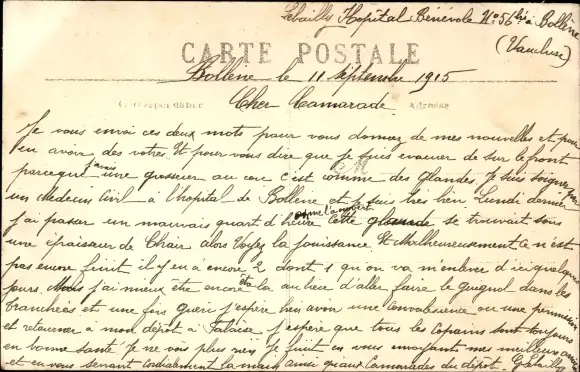 Lebailly Hopital Bénévole N° 56 bis à Bollène
(Vaucluse)
CARTE POSTALE
Bollène le 11 Septembre 1915
Cher Camarade
Adresse
Je vous envoi ces deux mots pour vous donnez de mes nouvelles et pour
en avoir des votres Et pour vous dire que Je suis evacuer de sur le front
parceque j'avais une grosseur au cou c'est comme des Glandes Je suis soigner par
un Medecin Civil à l'hopital de Bollene et Je suis très bien Lundi dernier
j'ai passer un mauvais quart d'heure on me l'a opéré cette glande se trouvait sous
une épaisseur de Chair alors Voyez la jouissance Et Malheureusement Ce n'est
pas encore finit il y en à encore 2 dont 1 qu on va m'enlever d'ici quelques
jours. Mais j'ai mieux être encore là au lieu d'aller faire le guignol dans les
tranchées et une fois gueri j'espère bien avoir une Convalescence ou une permission
et retourner à mon dépôt à Falaise j'espère que tous les Copains sont toujours
en bonne santé Je ne vois plus rien Je finit en vous envoyant mes meilleurs amitiés
et en vous serrant cordialement la main ainsi qu'aux Camarades du dépot. GLebailly